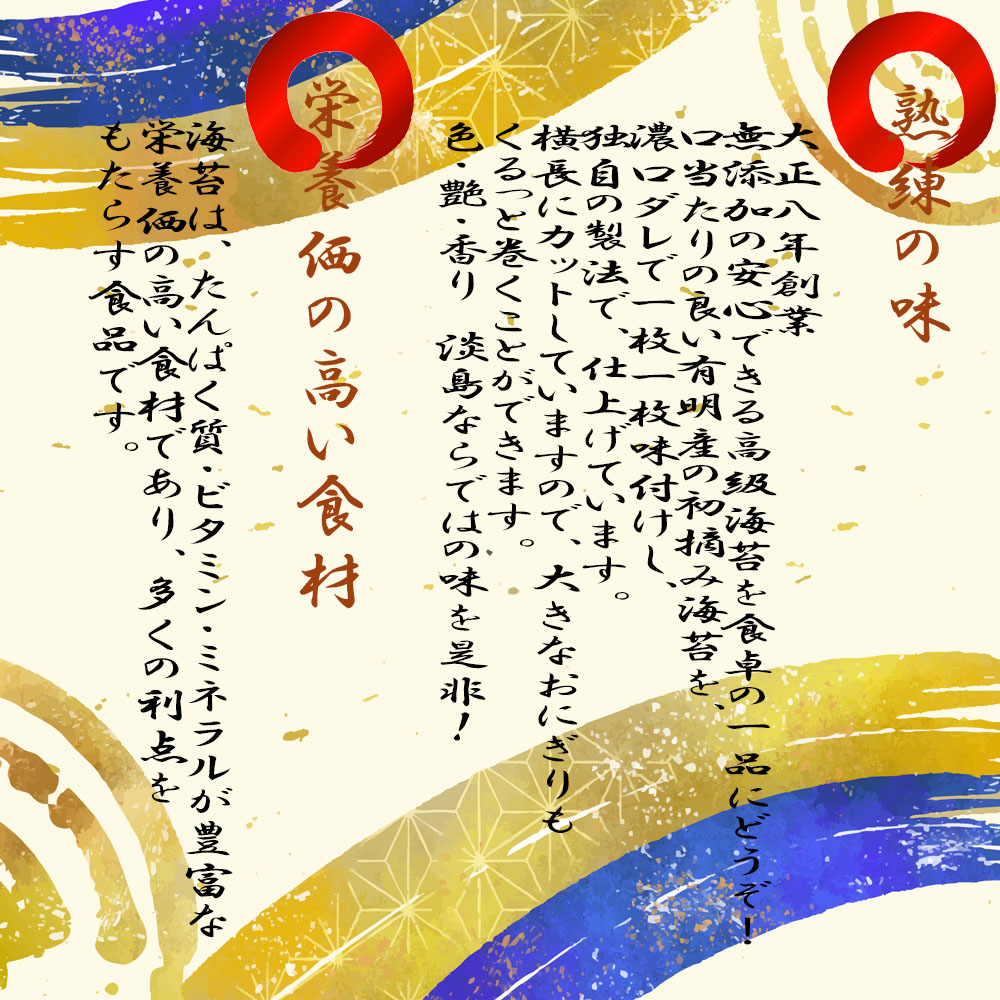 熟練の味
大正八年創業
無添加の安心できる高級海苔を食卓の一品にどうぞ！
口当たりの良い有明産の初摘み海苔を、
濃口ダレで一枚一枚味付けし、
独自の製法で、仕上げています。
横長にカットしていますので、大きなおにぎりも
くるっと巻くことができます。
色・艶・香り　淡島ならではの味を是非！
栄養価の高い食材
海苔は、たんぱく質・ビタミン・ミネラルが豊富な
栄養価の高い食材であり、多くの利点を
もたらす食品です。